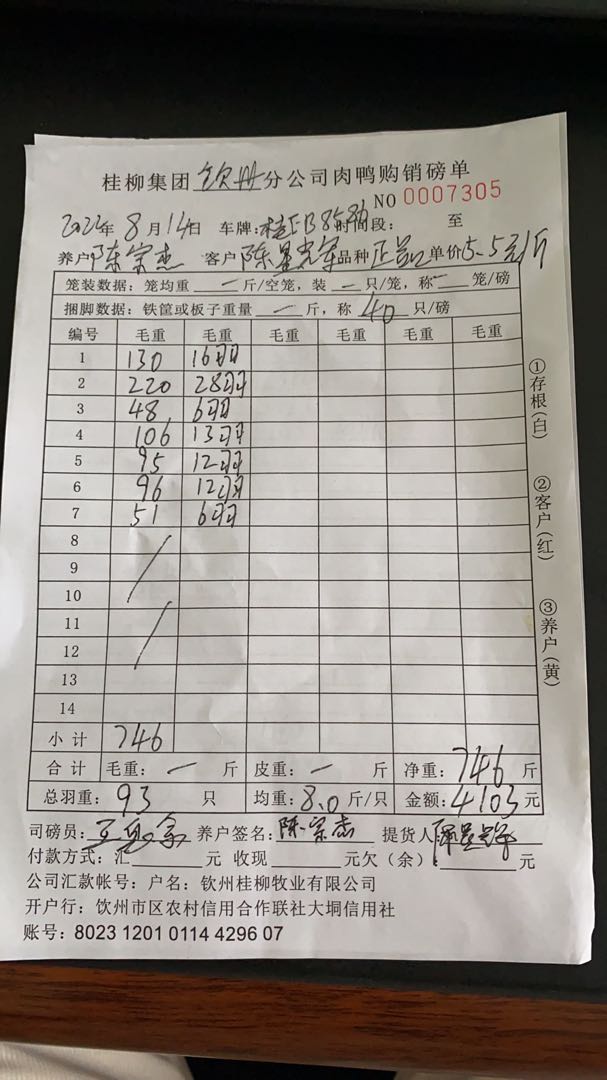 桂柳集团 钦州 分公司肉鸭购销磅单
NO 0007305
2022年 8月14日 车牌: 时间段: 至
养户 陈宗杰 客户 品种 正品 单价 5.5元/斤
笼装数据: 笼均重 — 斤/空笼, 装 — 只/笼, 称 — 笼/磅
捆脚数据: 铁筐或板子重量 — 斤, 称 40 只/磅
编号 毛重 毛重 毛重 毛重 毛重 毛重
1 130 16羽
2 220 28羽
3 48 6羽
4 106 13羽
5 95 12羽
6 96 12羽
7 51 6羽
8
9
10
11
12
13
14
小计 746
合计 毛重: — 斤 皮重: — 斤 净重: 746 斤
总羽重: 93 只 均重: 8.0 斤/只 金额: 4103 元
司磅员: 养户签名: 陈宗杰 提货人
付款方式: 汇 元 收现 元欠(余) 元
公司汇款帐号: 户名: 钦州桂柳牧业有限公司
开户行: 钦州市区农村信用合作联社大垌信用社
账号: 8023 1201 0114 4296 07
①存根(白)
②客户(红)
③养户(黄)